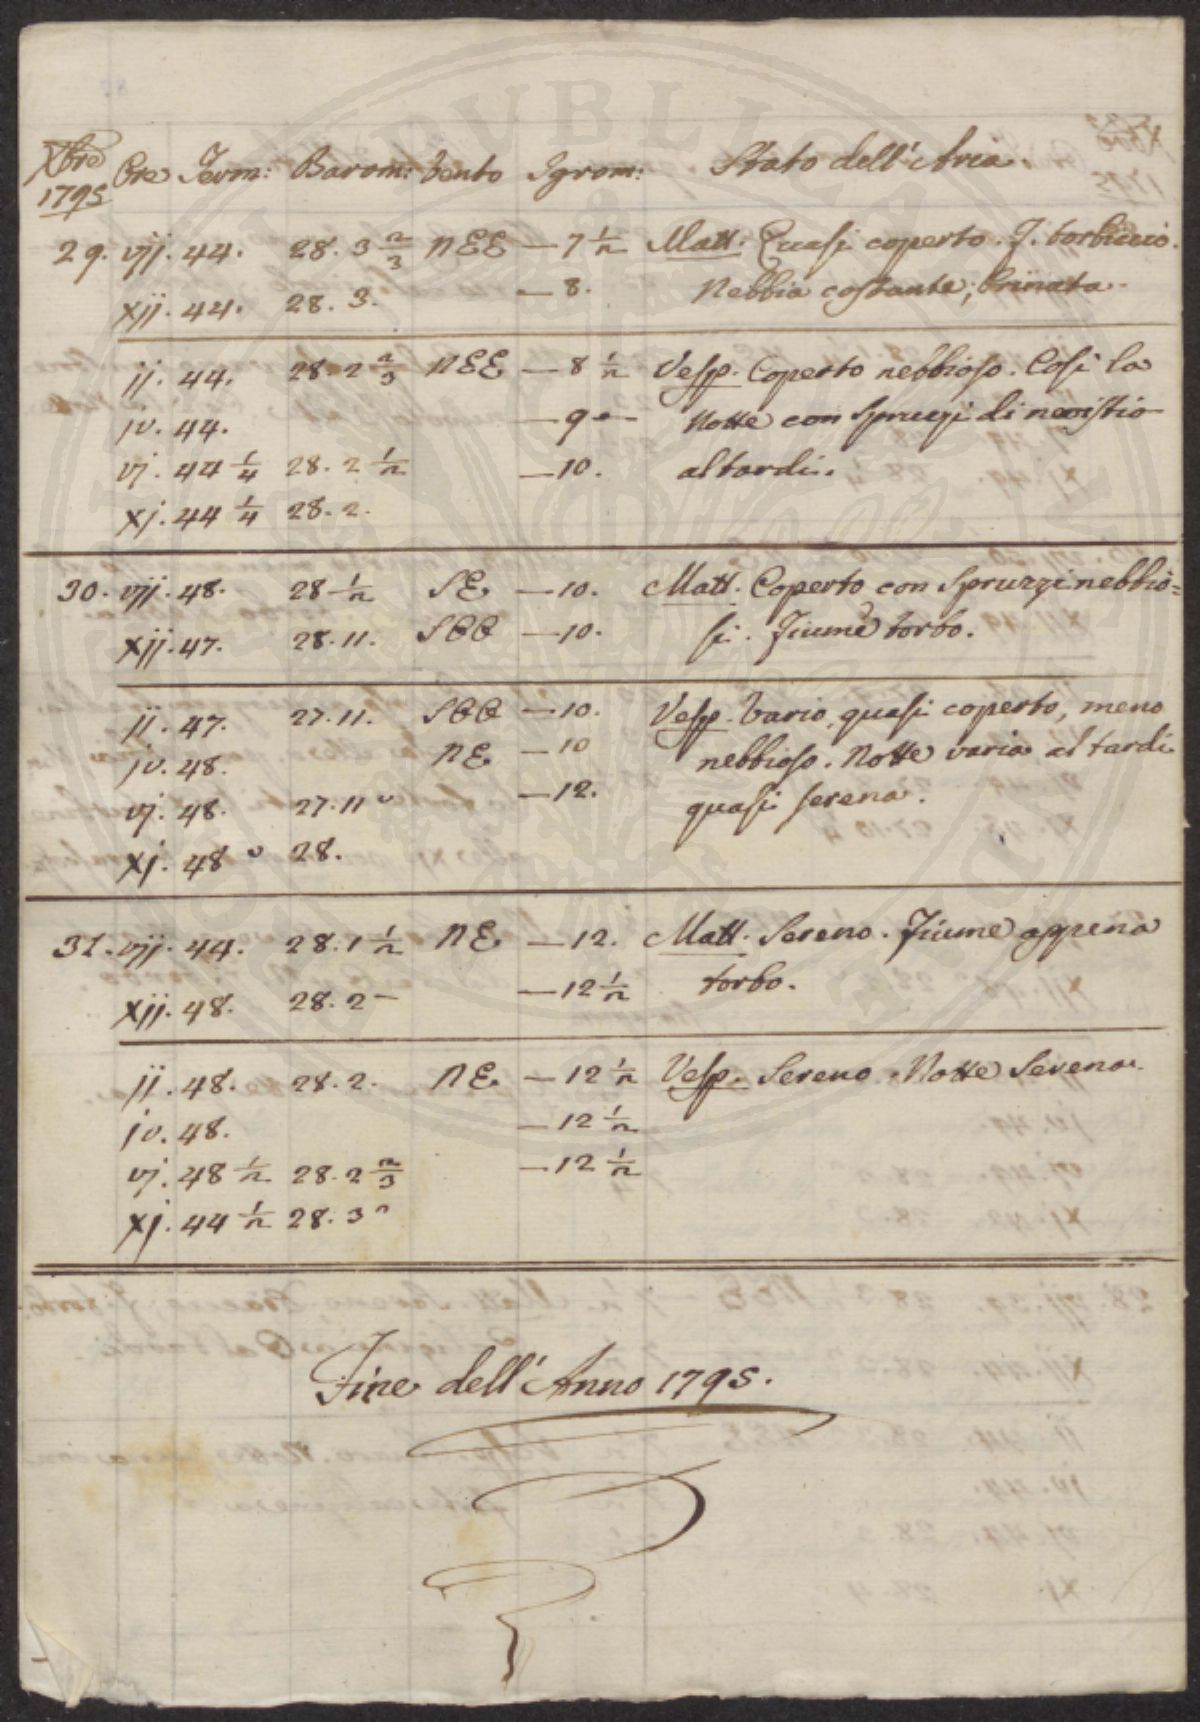 Xbre 1795 Ore Term: Barom: Vento Igrom: Stato dell'Aria.
29. vij. 44. 28. 3 2/3 NEE — 7 1/2 Matt. Quasi coperto. F. torbiccio.
xij. 44. 28. 3. — 8. Nebbia costante, brinata.
ij. 44. 28. 2 2/3 NEE — 8 1/2 Vesp. Coperto nebbioso. Così la
iv. 44. — 9 — Notte con spruzzi di nevistio
vj. 44 1/4 28. 2 1/2 — 10. al tardi.
xj. 44 1/4 28. 2.
30. vij. 48. 28 1/2 SE — 10. Matt. Coperto con spruzzi nebbio=
xij. 47. 28. 11. SOO — 10. si. Fiume torbo.
ij. 47. 27. 11. SOO — 10. Vesp. Vario, quasi coperto, meno
iv. 48. NE — 10 nebbioso. Notte varia al tardi
vj. 48. 27. 11 — 12. quasi serena.
xj. 48 28.
31. vij. 44. 28. 1 1/2 NE — 12. Matt. Sereno. Fiume appena
xij. 48. 28. 2 — — 12 1/2 torbo.
ij. 48. 28. 2. NE — 12 1/2 Vesp. Sereno. Notte Serena.
iv. 48. — 12 1/2
vj. 48 1/2 28. 2 2/3 — 12 1/2
xj. 44 1/2 28. 3
Fine dell'Anno 1795.